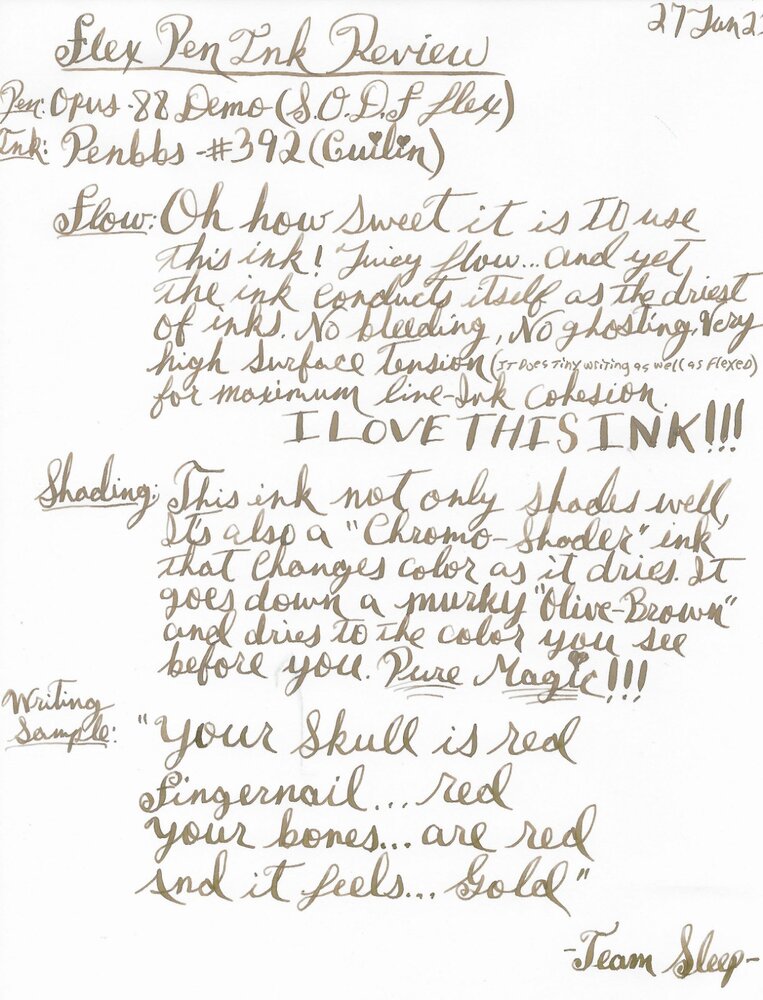 27 Jun 23
Flex Pen Ink Review
Pen: Opus-88 Demo (S.O.D.F flex)
Ink: Penbbs-#392 (Guilin)
Flow: Oh how sweet it is TO use
this ink! Juicy flow...and yet
the ink conducts itself as the driest
of inks. No bleeding, No ghosting. Very
high surface tension (IT Does Tiny writing as well as Flexed)
for maximum line-Ink cohesion.
I LOVE THIS INK!!!
Shading: This ink not only shades well,
It's also a "Chromo-Shader" ink
that changes color as it dries. It
goes down a murky "Olive-Brown"
and dries to the color you see
before you. Pure Magic!!!
Writing
Sample: "Your Skull is red
fingernail... red
Your bones... are red
And it feels... Gold"
-Team Sleep-